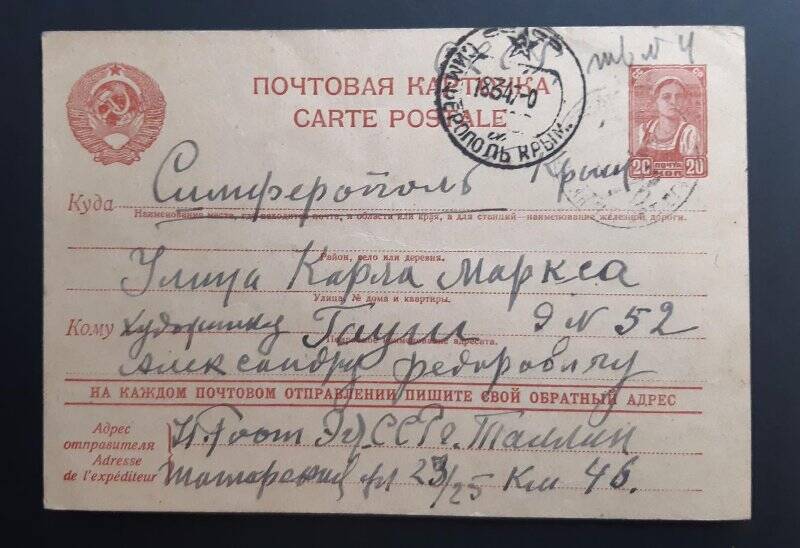 ПОЧТОВАЯ КАРТОЧКА
CARTE POSTALE
СССР
СИМФЕРОПОЛЬ КРЫМ.
18347-0
20 ПОЧТА 20
КОП
Куда Симферополь Крым
Наименование места, где находится почта, и области или края, а для станций—наименование железной дороги.
Район, село или деревня.
Улица Карла Маркса
Улица, № дома и квартиры.
Кому художнику Гауш Д N 52
Подробное наименование адресата.
Александру Федоровичу
НА КАЖДОМ ПОЧТОВОМ ОТПРАВЛЕНИИ ПИШИТЕ СВОЙ ОБРАТНЫЙ АДРЕС
Адрес
отправителя
Adresse
de l'expéditeur
ССР г. Таллин
23/25 Км 46.